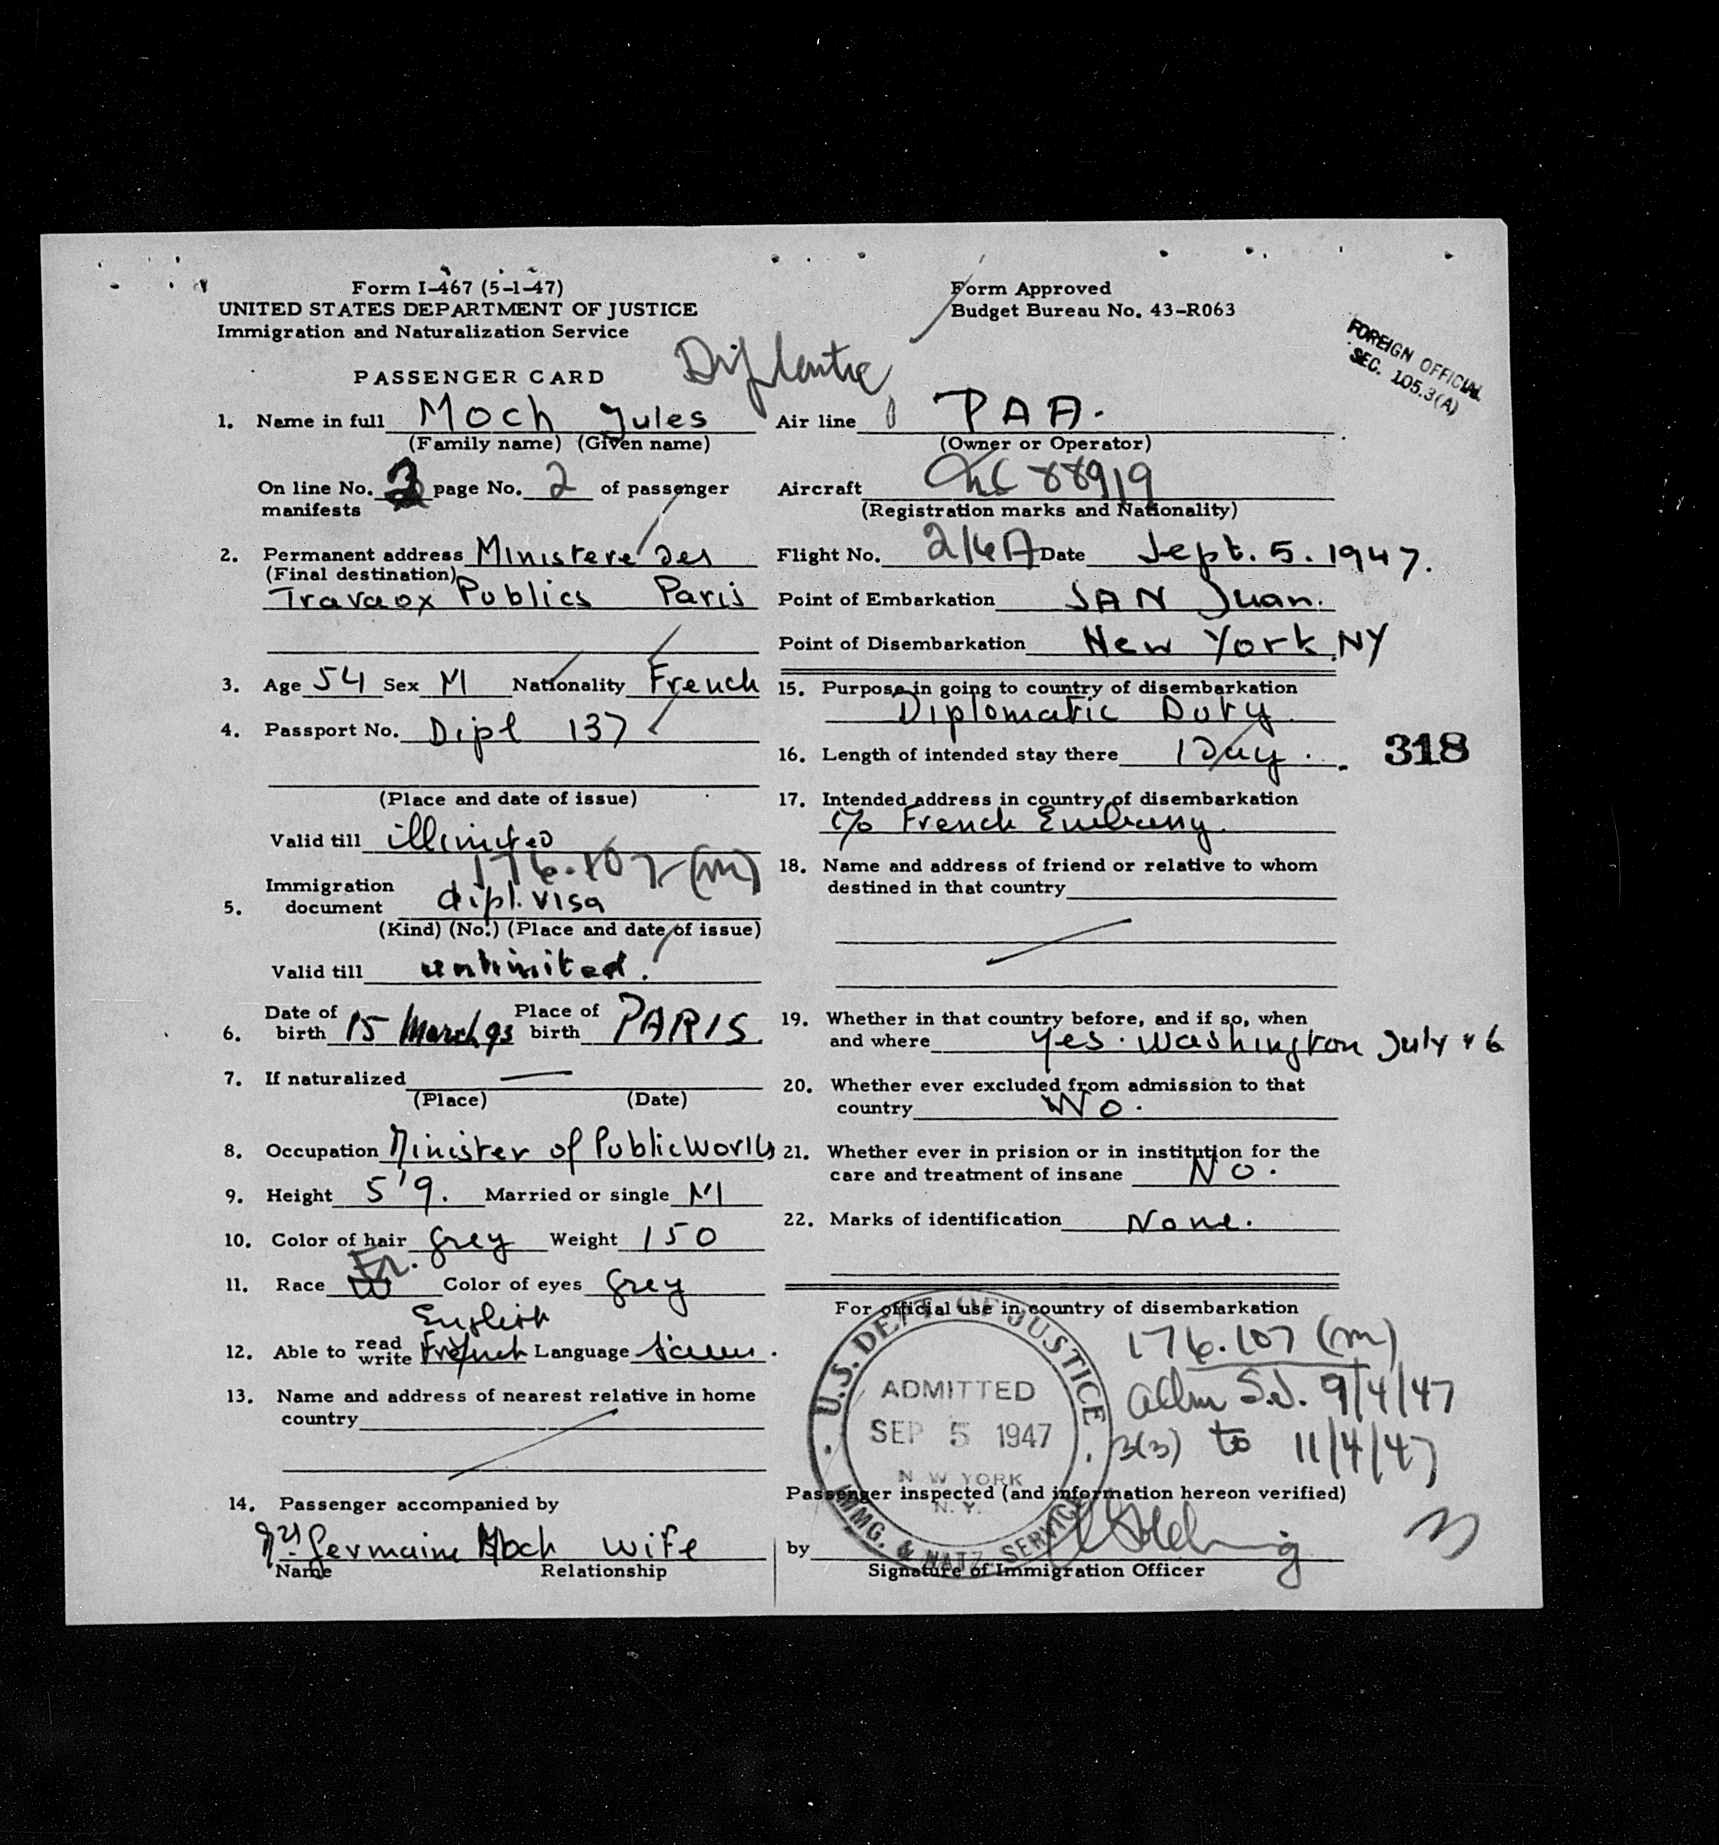 Form I-467 (5-1-47)
UNITED STATES DEPARTMENT OF JUSTICE
Immigration and Naturalization Service
PASSENGER CARD
Form Approved
Budget Bureau No. 43-R063
FOREIGN OFFICIAL
SEC. 105.3(A)
1. Name in full Moch Jules
(Family name) (Given name)
On line No. 3 page No. 2 of passenger
manifests
2. Permanent address Ministere des
(Final destination)
Travaux Publics Paris
3. Age 54 Sex M Nationality French
4. Passport No. Dipl 137
(Place and date of issue)
Valid till illimited
176.107 (m)
5. Immigration document dipl. visa
(Kind) (No.) (Place and date of issue)
Valid till unlimited.
6. Date of birth 15 March 93 Place of birth PARIS.
7. If naturalized —
(Place) (Date)
8. Occupation Minister of Public Works
9. Height 5'9. Married or single M
10. Color of hair grey Weight 150
Fr.
11. Race W Color of eyes grey
English
12. Able to read write French Language
13. Name and address of nearest relative in home
country
14. Passenger accompanied by
Germaine Moch wife
Name Relationship
Air line PAA.
(Owner or Operator)
Aircraft NC 88919
(Registration marks and Nationality)
Flight No. 216A Date Sept. 5. 1947.
Point of Embarkation SAN Juan.
Point of Disembarkation New York, NY
15. Purpose in going to country of disembarkation
Diplomatic Duty
16. Length of intended stay there 1 Day.
318
17. Intended address in country of disembarkation
c/o French Embassy
18. Name and address of friend or relative to whom
destined in that country
19. Whether in that country before, and if so, when
and where yes. Washington July 46
20. Whether ever excluded from admission to that
country No.
21. Whether ever in prision or in institution for the
care and treatment of insane No.
22. Marks of identification None.
For official use in country of disembarkation
U.S. DEPT. OF JUSTICE
ADMITTED
SEP 5 1947
N W YORK
N. Y.
IMMG. & NATZ. SERVICE
176.107 (m)
adm S.J. 9/4/47
3(3) to 11/4/47
Passenger inspected (and information hereon verified)
by
Signature of Immigration Officer